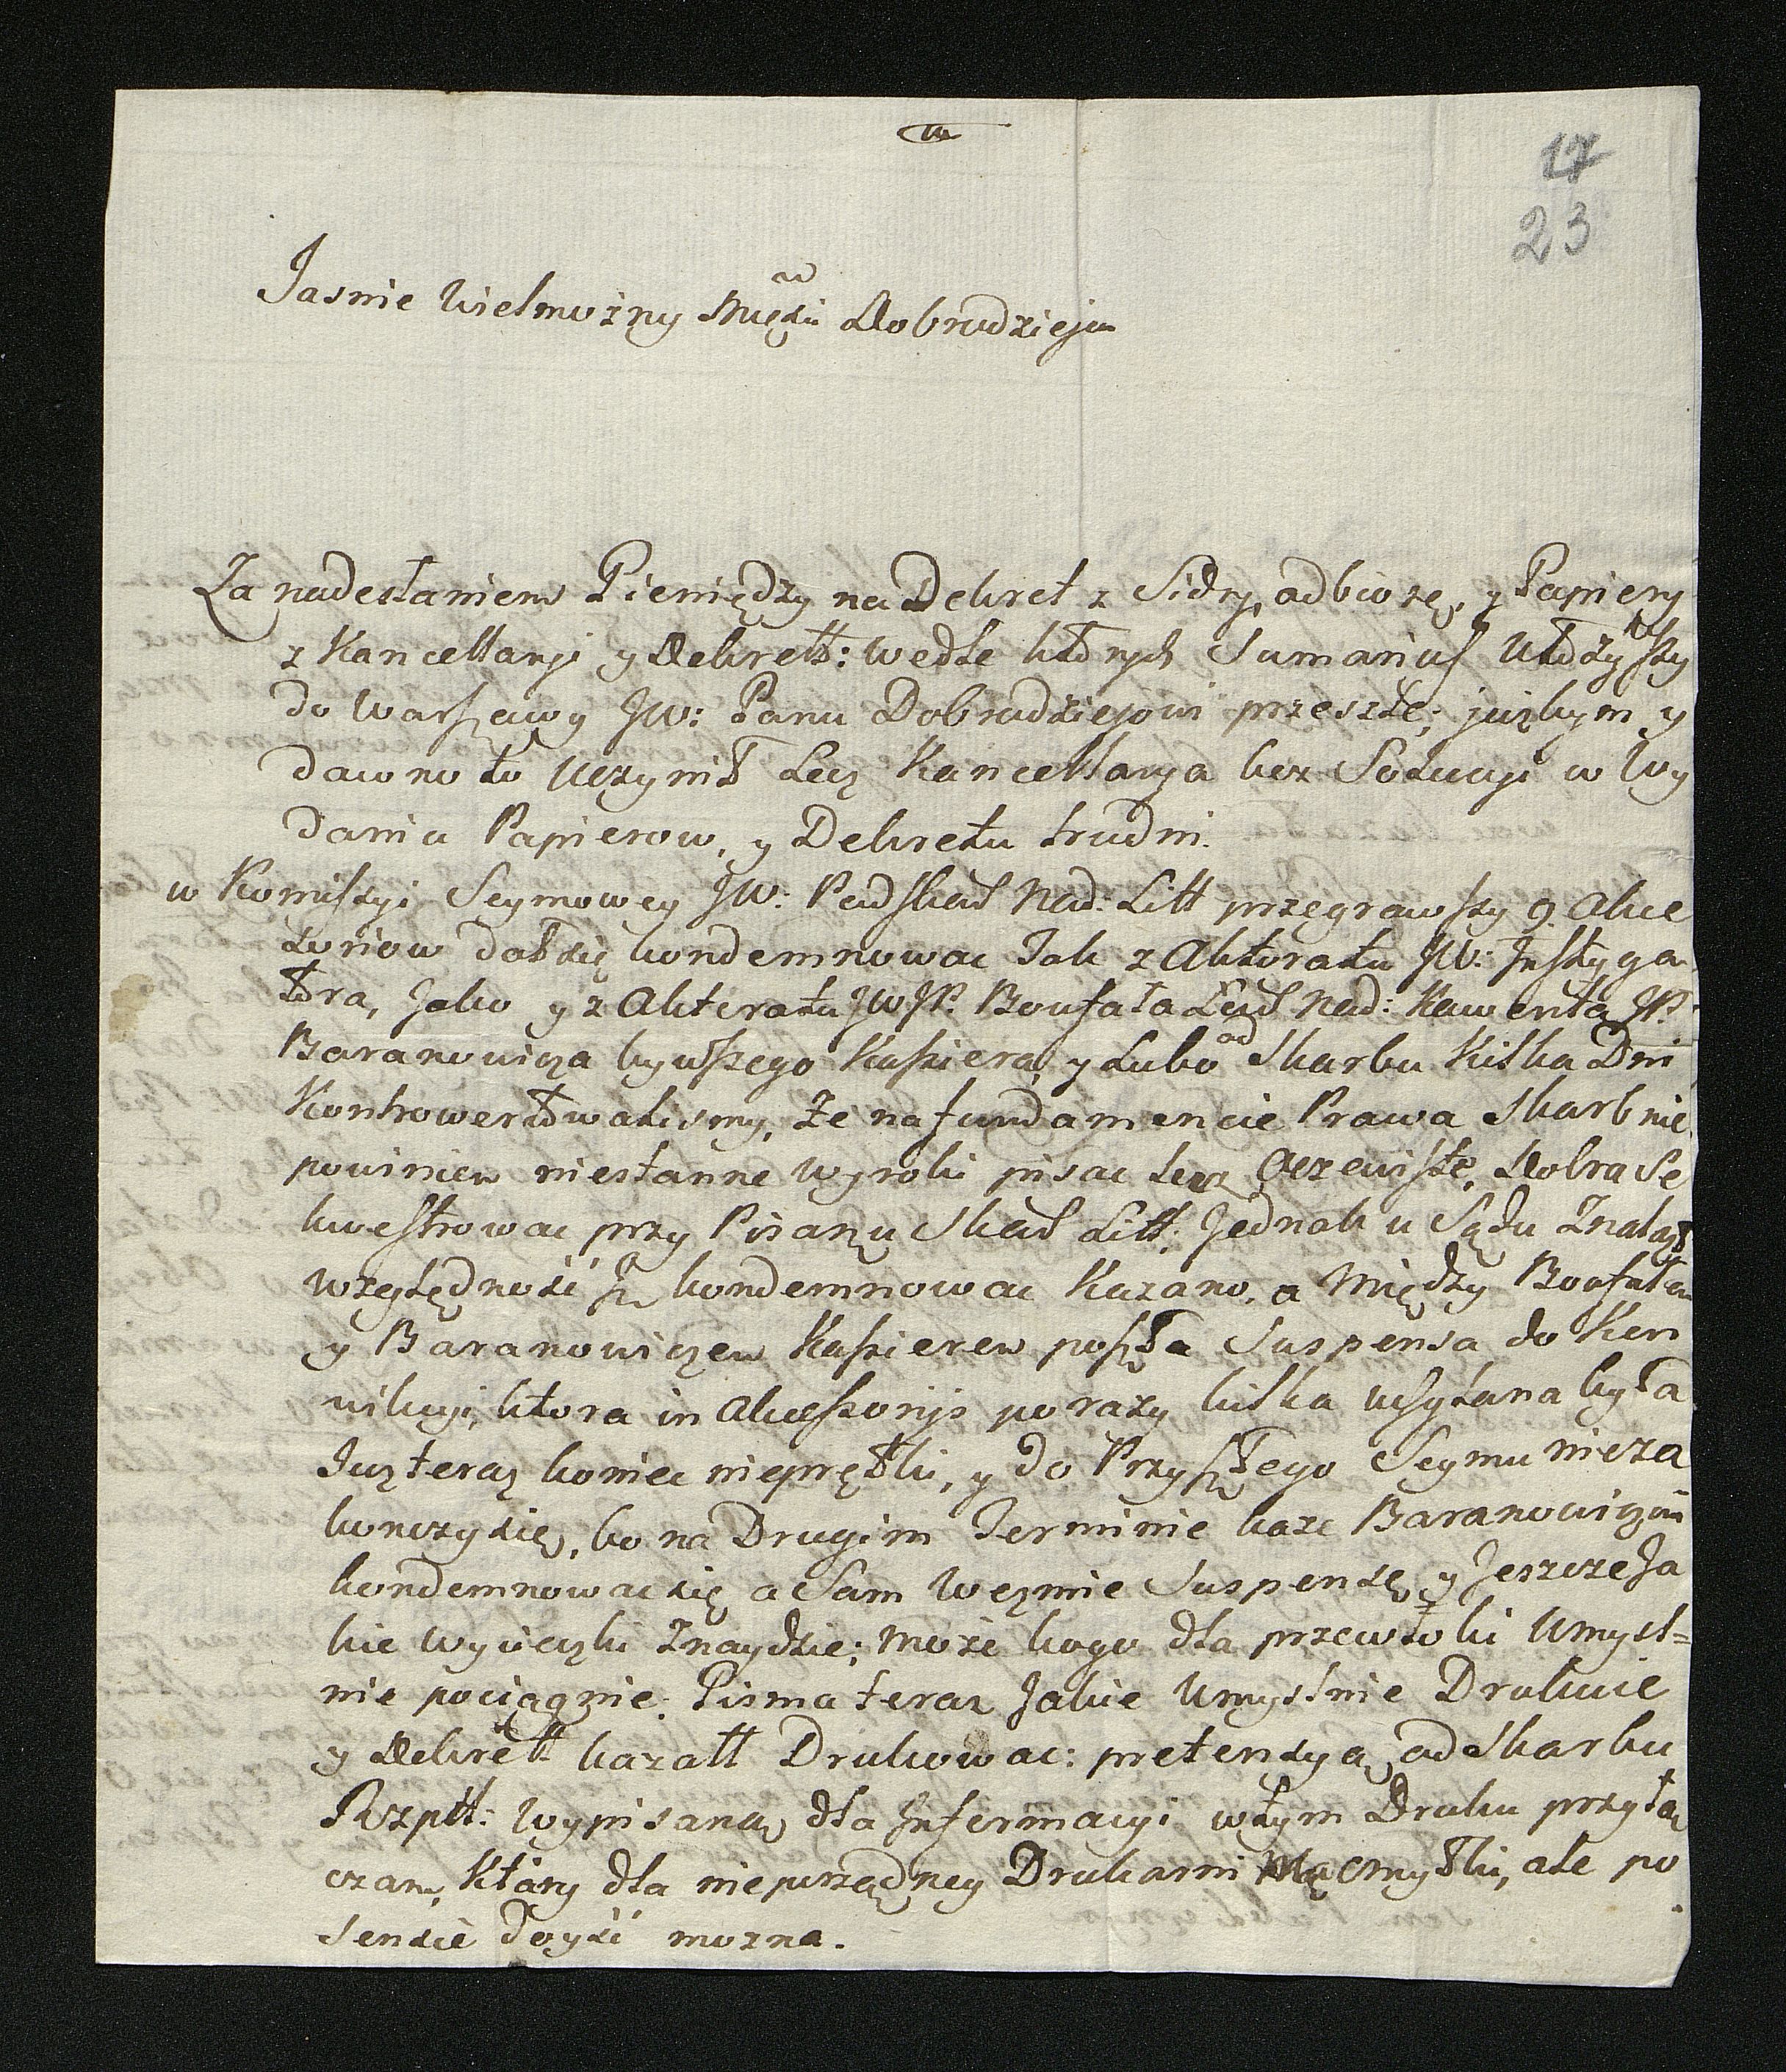 17
23
Jasnie Wielmożny Msci Dobrodzieju
Za nadesłaniem Pieniędzy na Dekret z Sidry, odbiorę, y Papiery
z Kancellaryi y Dekrett: wedle ktorych Sumariusz
do Warszawy JW: Panu Dobrodziejowi przeszlę; jużbym y
dawno to uczynił Lecz Kancellarya bez Solucyi w Wy
daniu Papierow, y Dekretu trudni.
w Komissyi Seymowey JW: Podskar Nad: Litt przegrawszy 9 Akce
soriow dał się kondemnowac Tak z Aktoratu JW: Instyga
tora, Jako y z Aktoratu JWJP. Boufała Nad: Kawenta JP.
Baranowicza bywszego Kassiera, y Lubo od Skarbu Kilka Dni
Kontrowertowalismy, że na fundamencie Prawa Skarb nie
powinien niestanne wyroki pisac lecz Oczewiste, Dobra Se
kwestrowac przy Pisarzu Skar Litt: Jednak u Sądu Znalazł
względność y kondemnowac Kazano, a Między Boufałem
y Baranowiczem Kassierem poszła Suspensa do Kon
wikcyi, ktora in Akcessorijs po razy kilka wsyłana była
Już teraz koniec nieprętki, y do Przyszłego Seymu nieza
konczy się, bo na Drugim Terminie każe Baranowiczowi
kondemnowac się a Sam Wezmie Suspensę, y Jeszcze Ja
kie wycieczki Znaydzie; może kogo dla przewłoki Umysl=
nie pociągnie. Pisma teraz Jakie Umyslnie Drukuie
y Dekrett kazałł Drukowac: pretensyą od Skarbu
Rzptt: Wypisaną dla Informacyi w tym Druku przyłą
czam, Ktory dla nieporządney Drukarni Ma omyłki, ale po
sensie Doyść mozna.